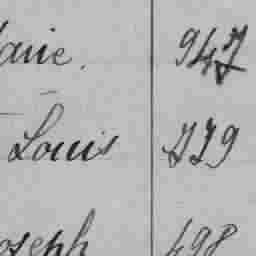 Marie. 947
Louis 779
Joseph 498